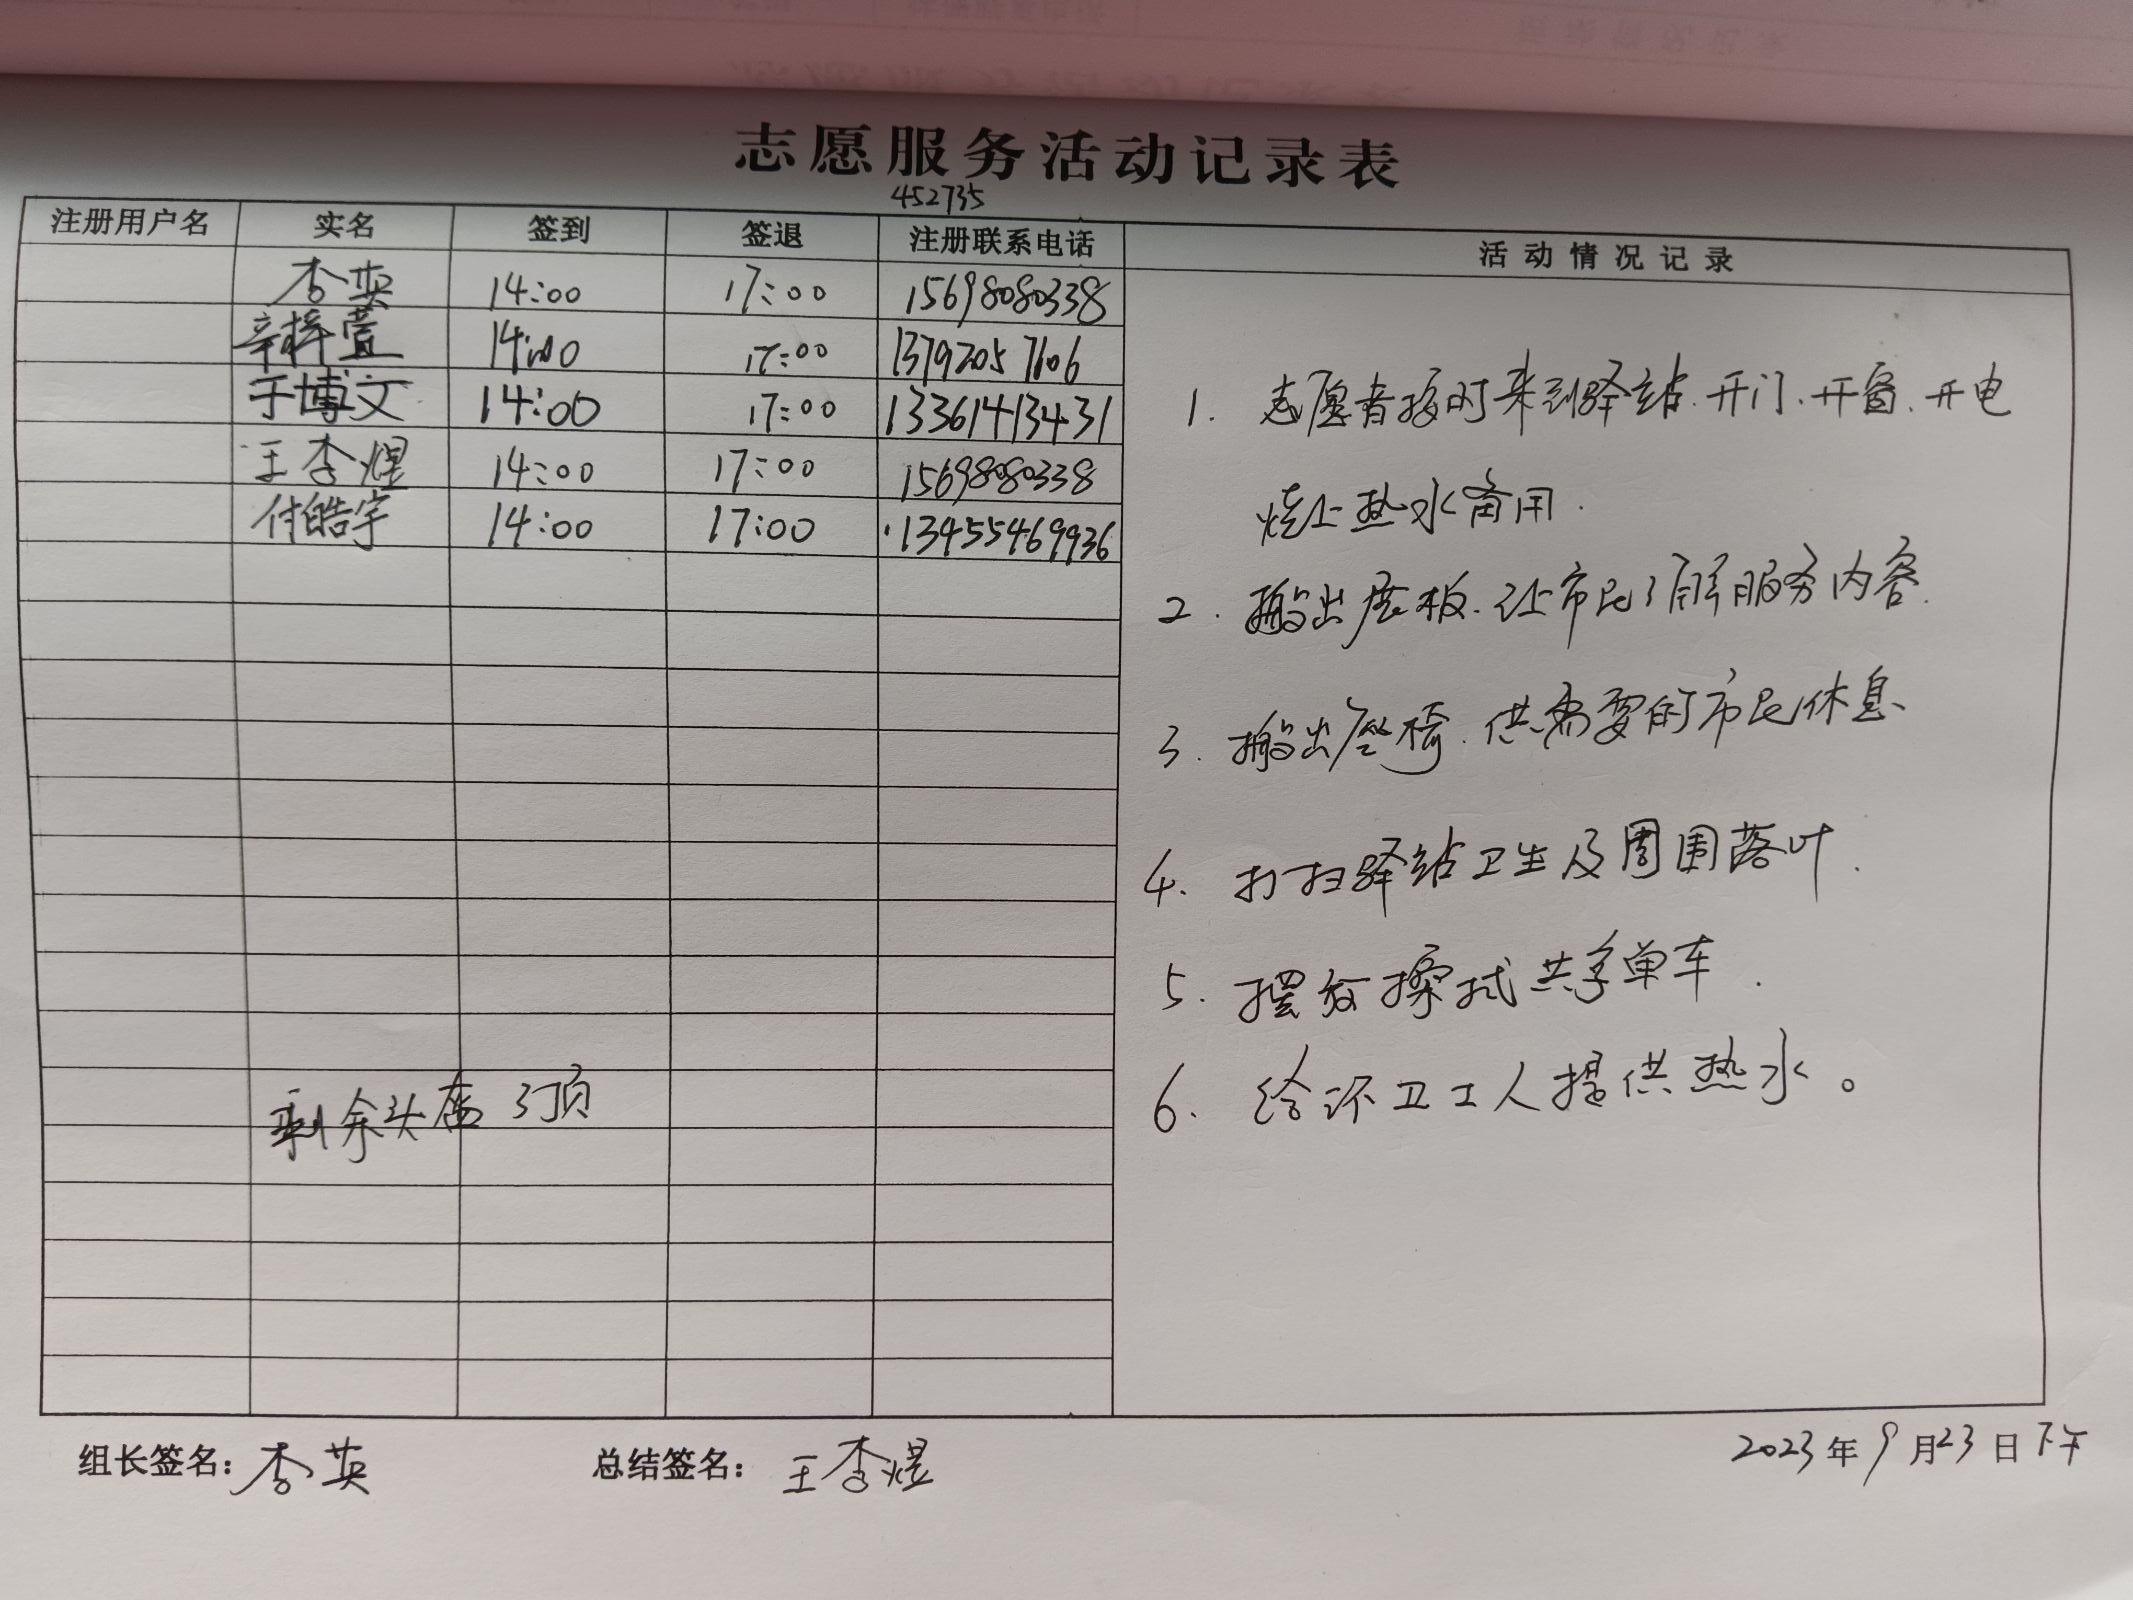 志愿服务活动记录表
452735
注册用户名 实名 签到 签退 注册联系电话 活动情况记录
李英 14:00 17:00 15698080338
辛梓萱 14:00 17:00 13792057606
于博文 14:00 17:00 13361413431
王李煜 14:00 17:00 15698080338
付皓宇 14:00 17:00 13455469936
1. 志愿者按时来到驿站.开门.开窗.开电
烧上热水备用.
2. 搬出展板.让市民了解服务内容.
3. 搬出座椅.供需要的市民休息、
4. 打扫驿站卫生及周围落叶.
5. 摆放擦拭共享单车.
6. 给环卫工人提供热水。
剩余头盔3顶
组长签名：李英 总结签名：王李煜 2023年9月23日下午